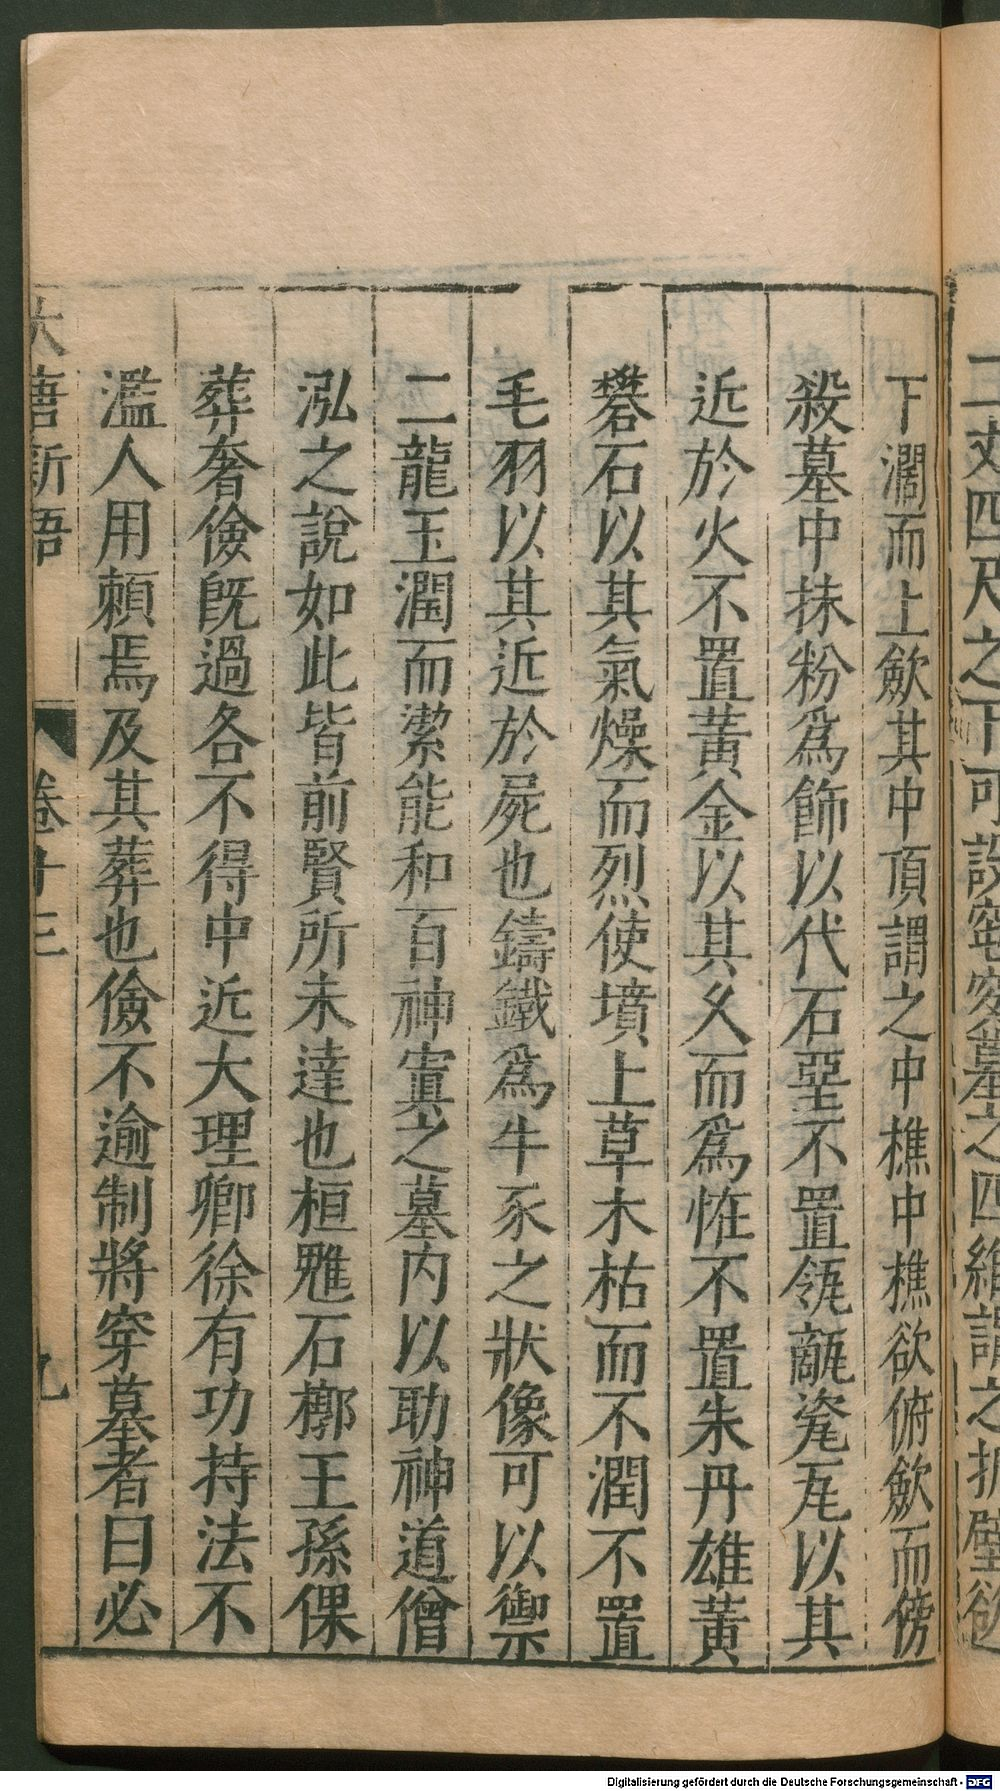 二丈四尺之下可設窀穸墓之四維謂之折壁欲
下濶而上歛其中頂謂之中樵中樵欲俯歛而傍
殺墓中抹粉爲飾以代石堊不置瓴甋瓷瓦以其
近於火不置黃金以其乆而爲恠不置朱丹雄黃
礬石以其氣燥而烈使墳上草木枯而不潤不置
毛羽以其近於屍也鑄鐵爲牛豕之狀像可以禦
二龍玉潤而潔能和百神寘之墓内以助神道僧
泓之說如此皆前賢所未達也桓魋石槨王孫倮
葬奢儉既過各不得中近大理卿徐有功持法不
濫人用頼焉及其葬也儉不逾制將穿墓者曰必
大唐新語 卷十三 九
Digitalisierung gefördert durch die Deutsche Forschungsgemeinschaft - DFG